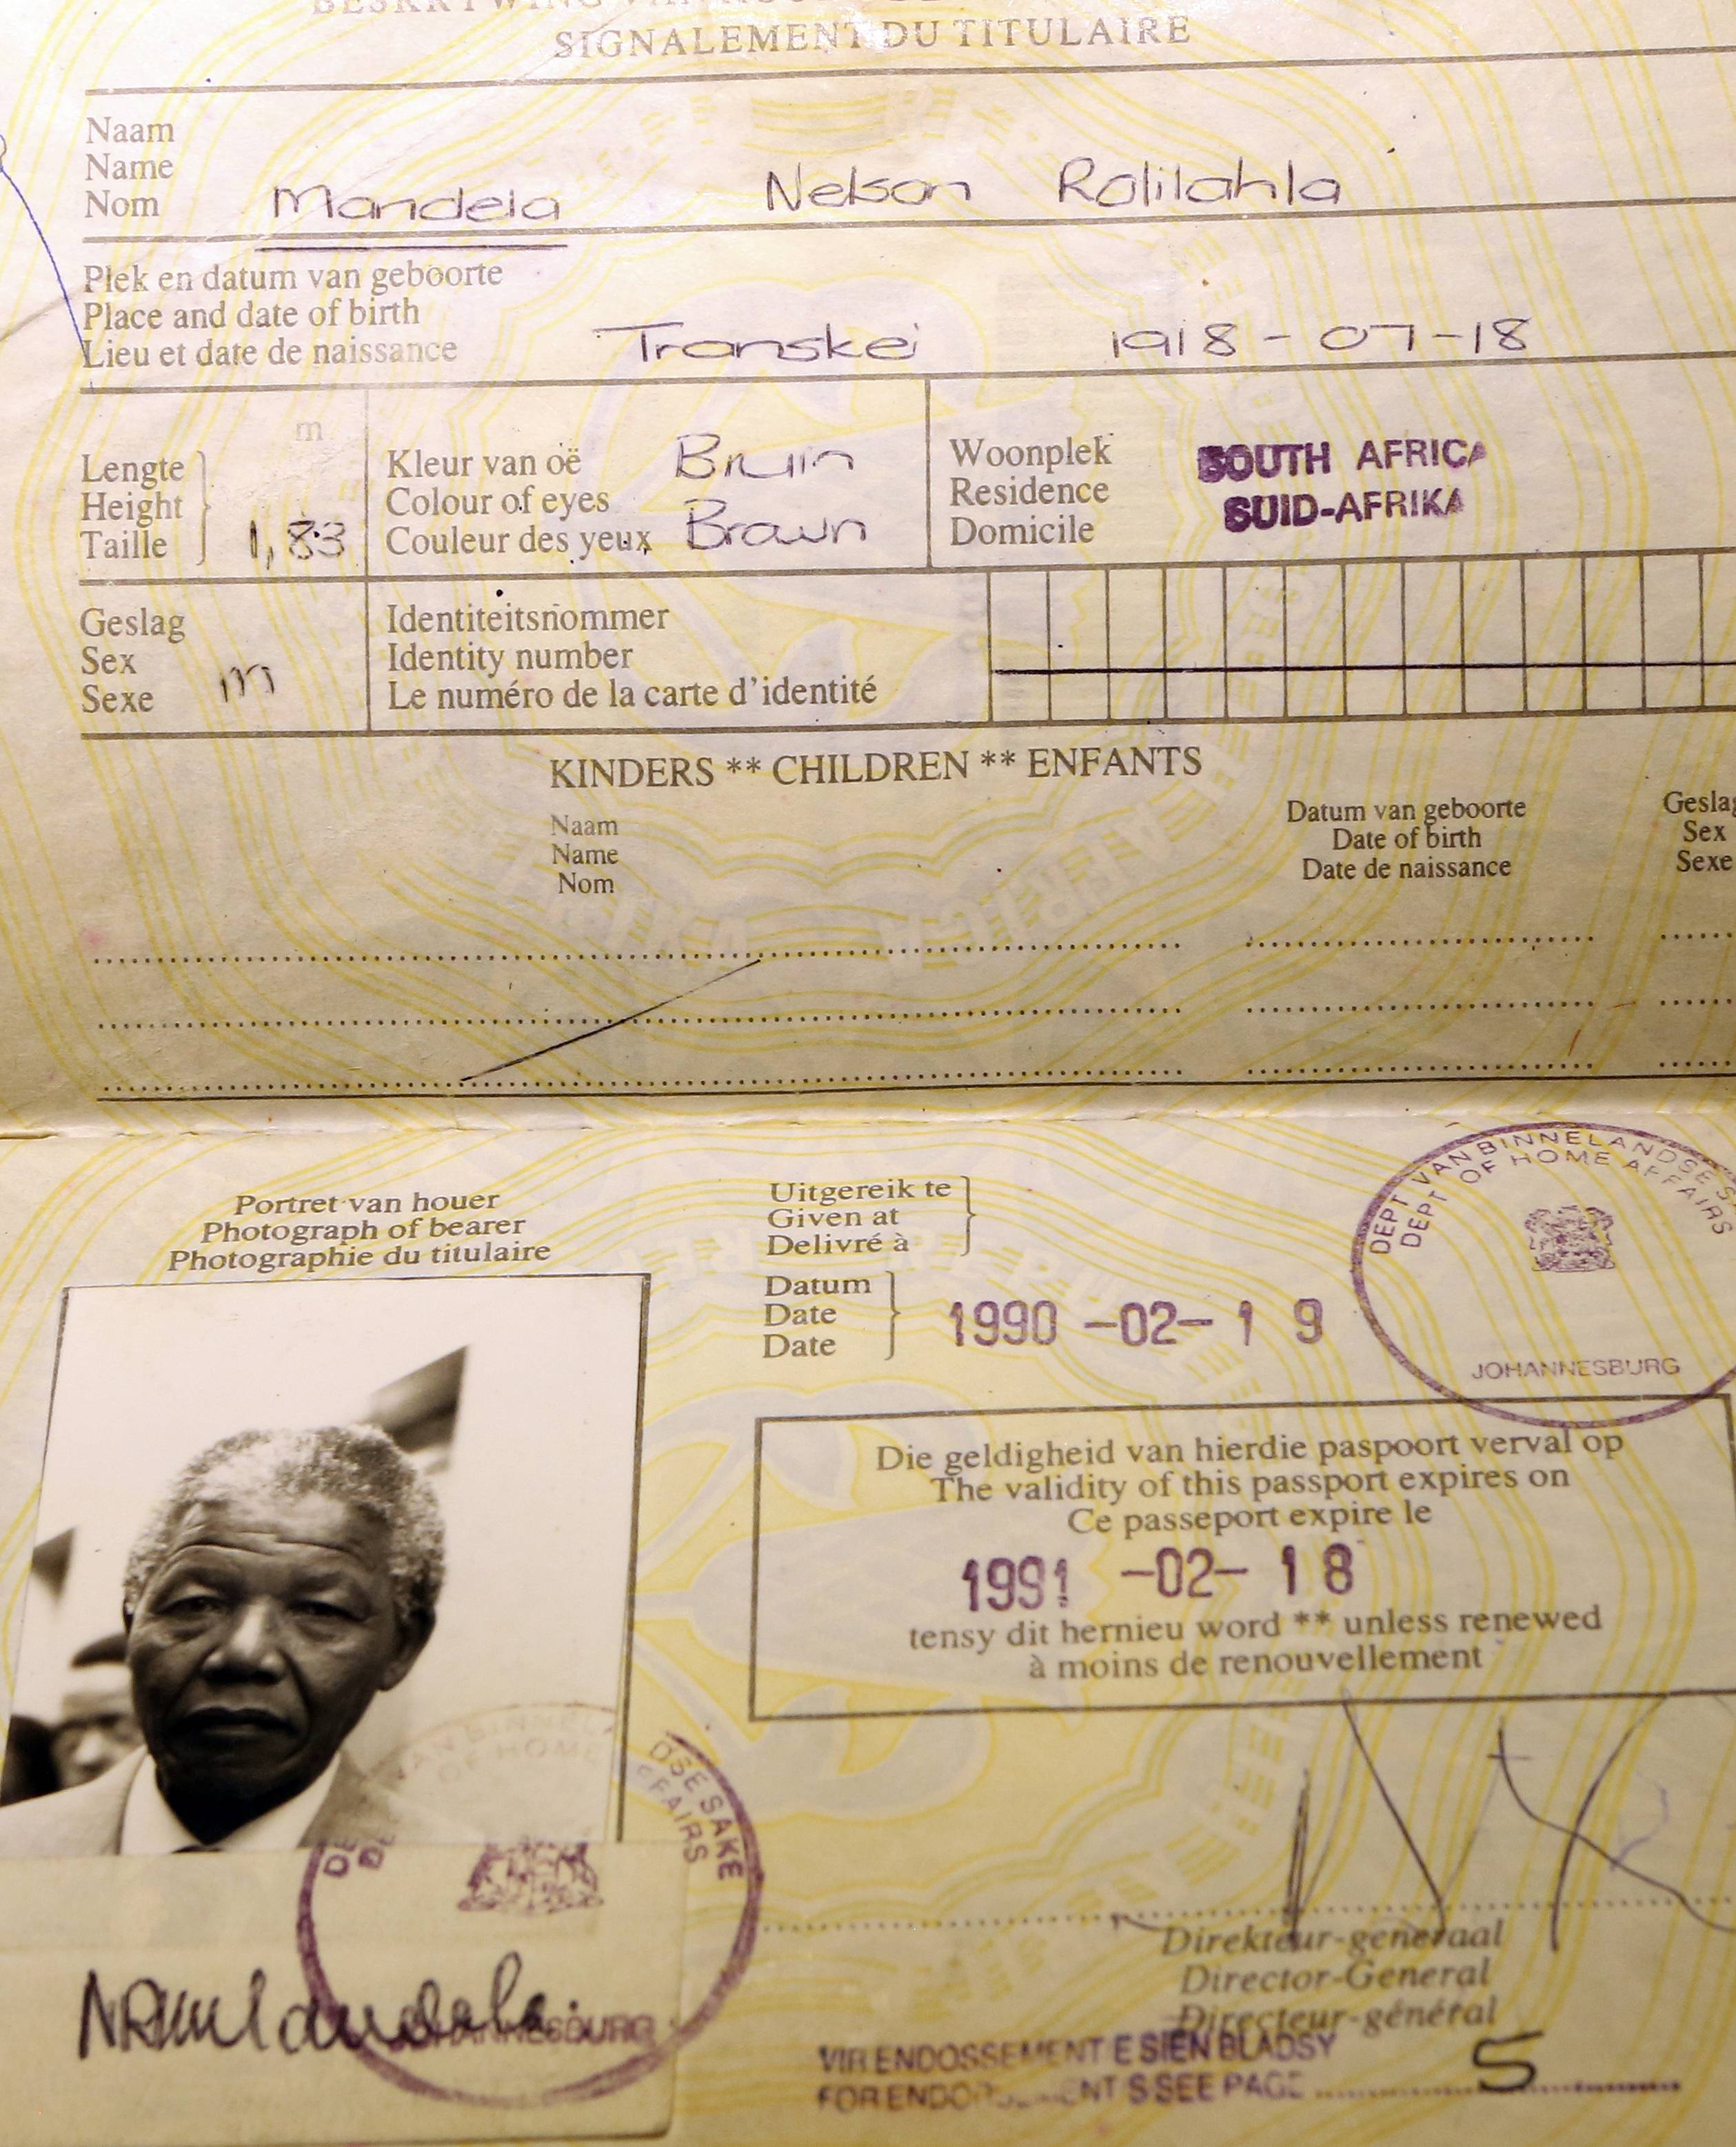 SIGNALEMENT DU TITULAIRE
Naam
Name
Nom Mandela Nelson Rolilahla
Plek en datum van geboorte
Place and date of birth
Lieu et date de naissance Transkei 1918-07-18
m
Lengte
Height
Taille 1,83
Kleur van oë Bruin
Colour of eyes
Couleur des yeux Brown
Woonplek
Residence
Domicile
SOUTH AFRICA
SUID-AFRIKA
Geslag
Sex
Sexe m
Identiteitsnommer
Identity number
Le numéro de la carte d'identité
KINDERS ** CHILDREN ** ENFANTS
Naam
Name
Nom
Datum van geboorte
Date of birth
Date de naissance
Geslag
Sex
Sexe
Portret van houer
Photograph of bearer
Photographie du titulaire
Uitgereik te
Given at
Delivré à
Datum
Date
Date
1990 -02- 1 9
DEPT VAN BINNELANDSE
DEPT OF HOME AFFAIRS
JOHANNESBURG
Die geldigheid van hierdie paspoort verval op
The validity of this passport expires on
Ce passeport expire le
1991 -02- 1 8
tensy dit hernieu word ** unless renewed
à moins de renouvellement
VAN BINNEL DSE SAKE
OF HOME FFAIRS
NRMandela
JOHANNESBURG
Direkteur-generaal
Director-General
Directeur-général
VIR ENDOSSEMENT E SIEN BLADSY
FOR ENDORSEMENT S SEE PAGE 5